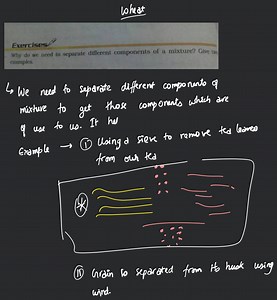 Wheat
Exercises
Why do we need to separate different components of a mixture? Give two
examples.
We need to separate different components of
mixture to get those components which are
of use to us. It he
Example → (I) Using a sieve to remove tea leaves
from our tea
(II) Grain is separated from its husk using
wind